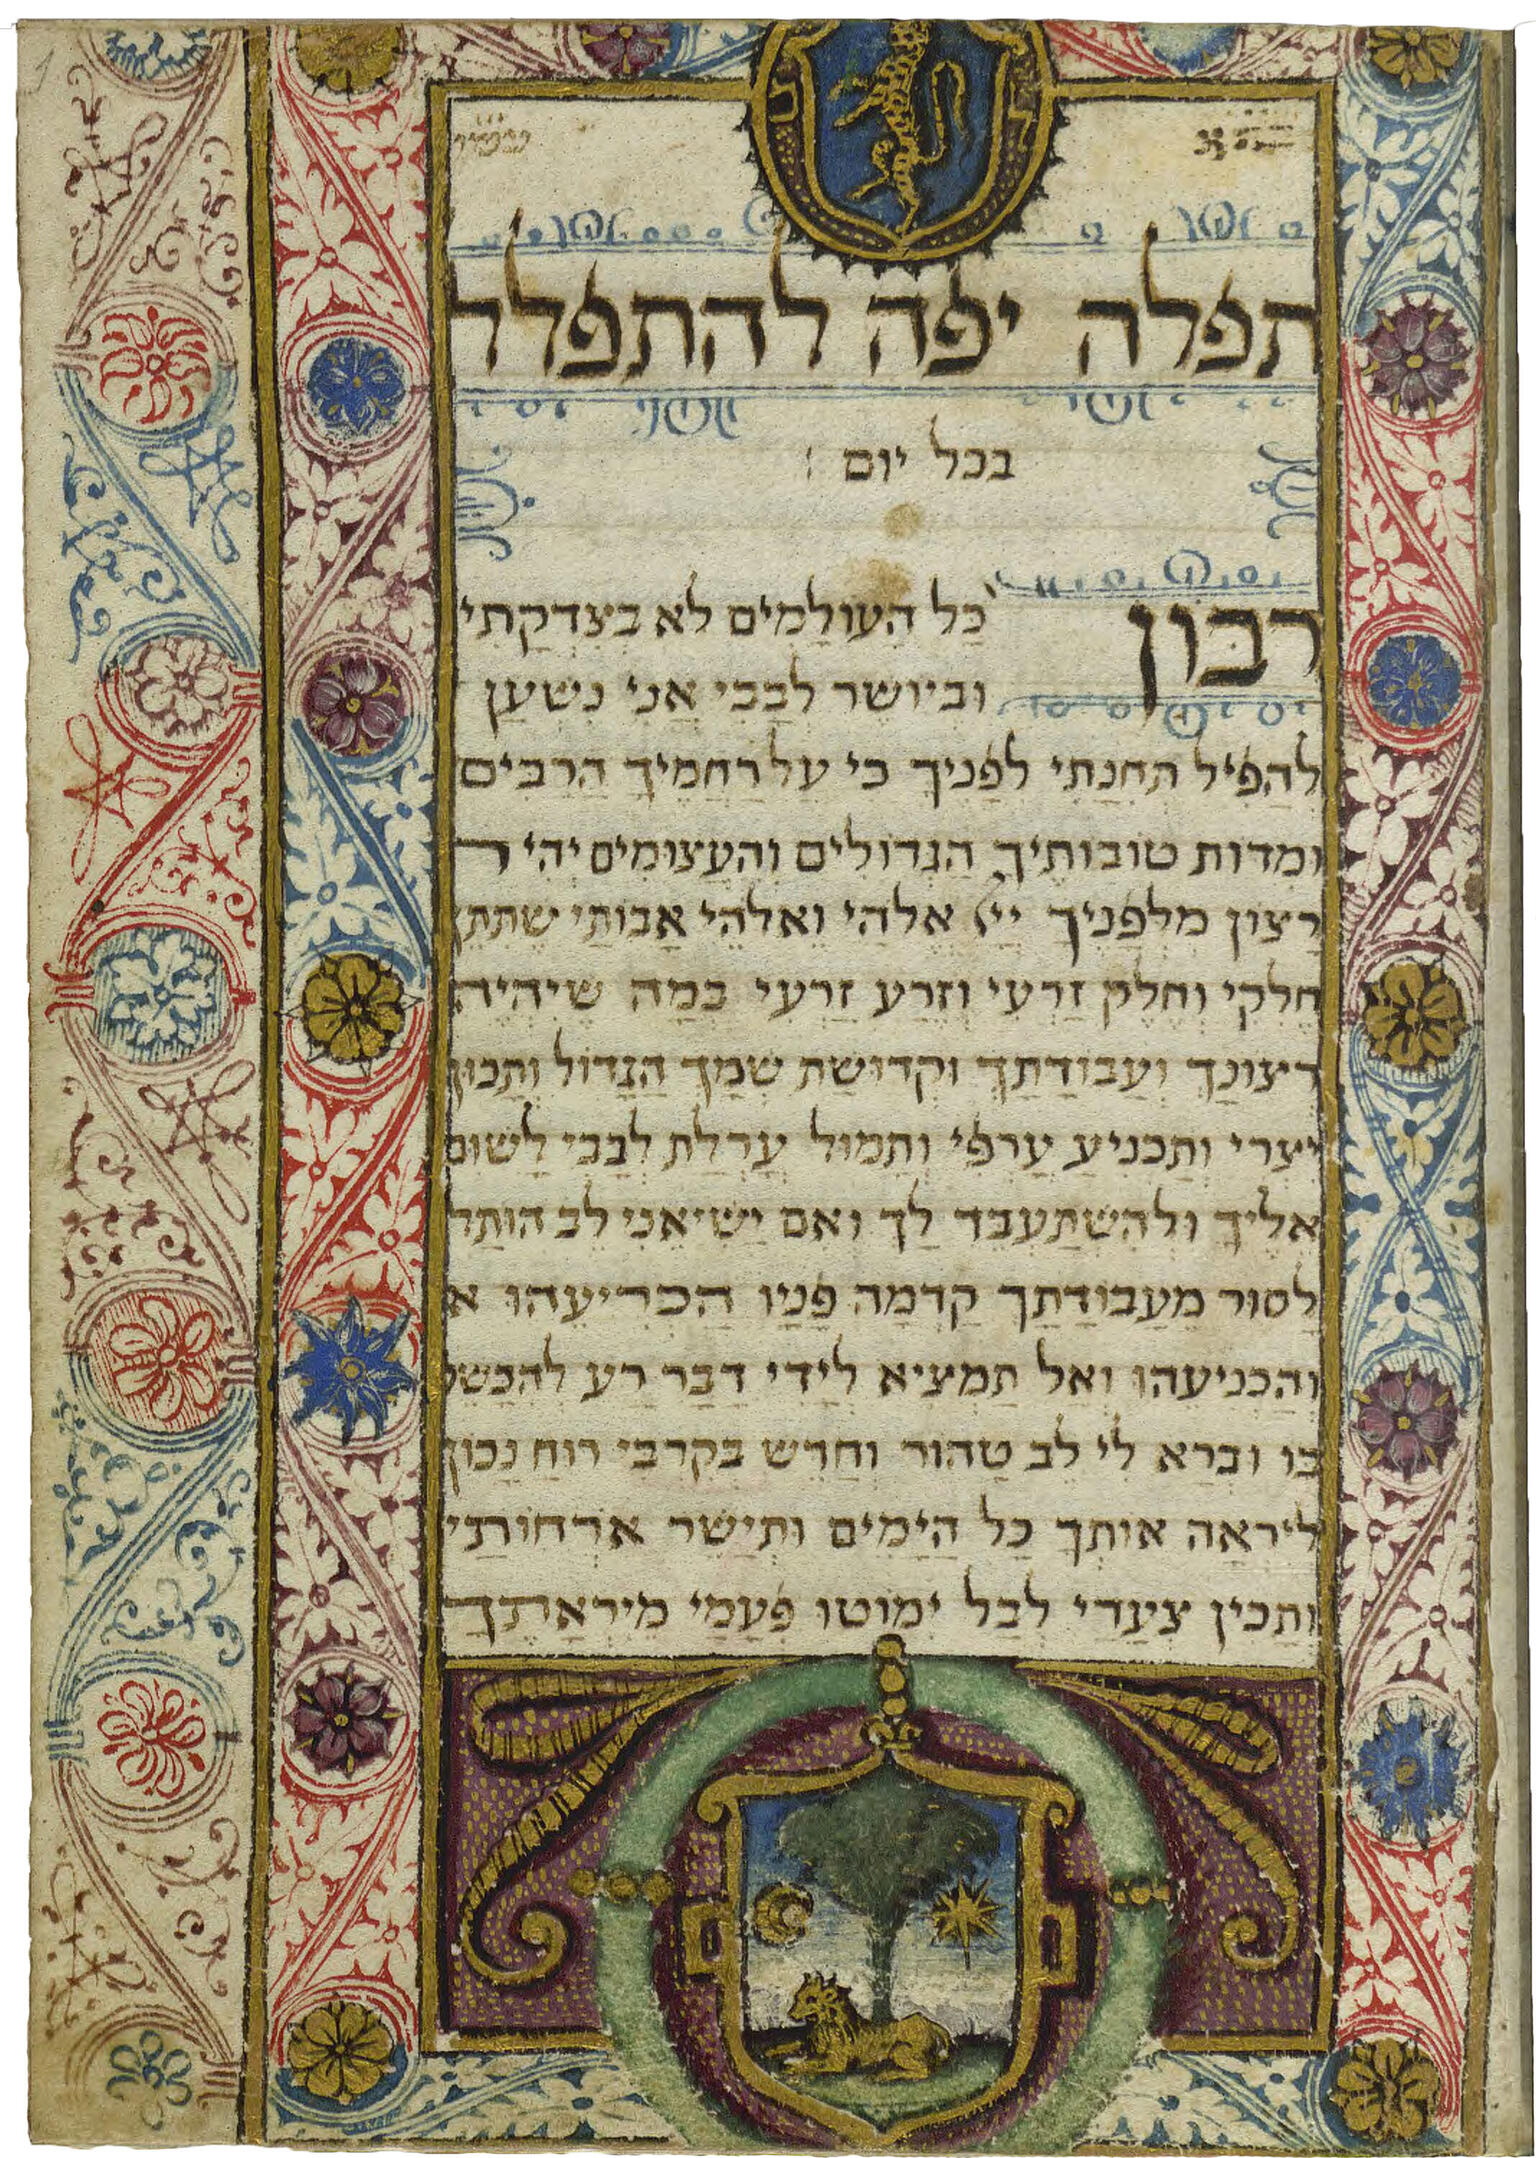 תפלה יפה להתפלל
בכל יום :
רבון כָל הָעולָמִים לא בְצִדְקָתִי
וביושר לבבי אֲנִי נִשְעָן
לְהַפִיל תְחִנָתִי לפָניך כי על רַחֲמֶיךָ הרבים
ומדות טובותֶיךָ הַגְדולים והעֲצומים יהי ר
רָצון מלפָנֶיךָ ייָ אלהי ואלהֵי אֲבותַי שתתן
חלקי וחלק זַרעִי וזֶרַע זַרעִי בְמַה שיִהְיֶה
רצונָךְ וַעֲבודָתָךְ וקְדושַת שְמָךְ הַגָדול ותָכון
יִצְרִי ותַכנִיע עָרפִי ותמול עָרְלַת לְבָבִי לָשוב
אליך ולְהִשְתַעְבֵד לָךְ ואִם יַשִיאֵנִי לב הותַל
לָסור מֵעֲבודָתָךְ קַדְמָה פָנָיו הַכְרִיעֵהו א
והַכניעֵהו ואל תַמְצִיא לְיָדִי דָבָר רַע להכשל
בו ובְרָא לִי לֵב טָהור וחַדֵש בְקרבי רוחַ נָכון
ליראָה אותְךָ כָל הַיָמים ותְיַשֵר ארחותַי
ותָכין צְעָדַי לְבל יִמוטו פְעָמַי מיראָתֶךָ